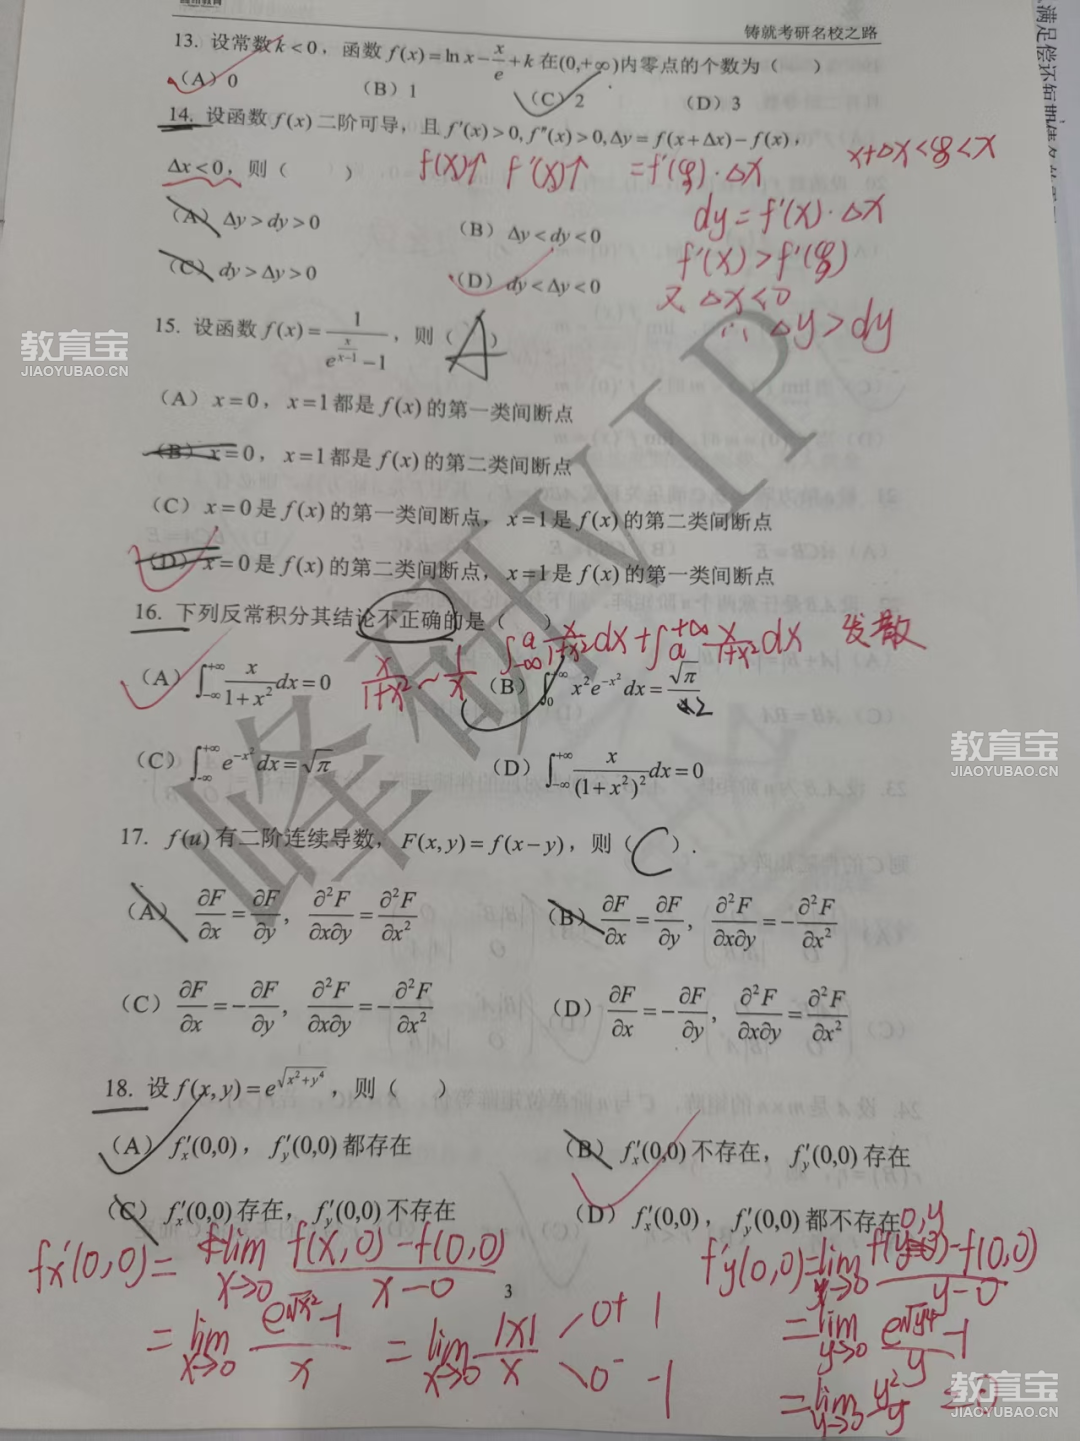 铸就考研名校之路
13. 设常数 k<0，函数 f(x)=ln x−x/e+k 在(0,+∞)内零点的个数为（ ）
（A）0 （B）1 （C）2 （D）3
14. 设函数 f(x) 二阶可导，且 f′(x)>0, f″(x)>0, Δy=f(x+Δx)−f(x)，
Δx<0，则（ ）
f(x)↑ f′(x)↑ =f′(ξ)·Δx x+Δx<ξ<x
（A）Δy>dy>0 （B）Δy<dy<0
dy=f′(x)·Δx
f′(x)>f′(ξ)
（C）dy>Δy>0 （D）dy<Δy<0
又 Δx<0
∴ Δy>dy
15. 设函数 f(x)=1/(e^(x/(x−1))−1)，则（A）
（A）x=0，x=1都是 f(x) 的第一类间断点
（B）x=0，x=1都是 f(x) 的第二类间断点
（C）x=0是 f(x) 的第一类间断点，x=1是 f(x) 的第二类间断点
（D）x=0是 f(x) 的第二类间断点，x=1是 f(x) 的第一类间断点
16. 下列反常积分其结论不正确的是（ ）
∫_{-∞}^{a} x/(1+x²)dx+∫_{a}^{+∞} x/(1+x²)dx 发散
（A）∫_{-∞}^{+∞} x/(1+x²)dx=0 x/(1+x²)~1/x （B）∫_{0}^{+∞} x²e^(−x²)dx=√π/2
（C）∫_{-∞}^{+∞} e^(−x²)dx=√π （D）∫_{-∞}^{+∞} x/(1+x²)²dx=0
17. f(u) 有二阶连续导数，F(x,y)=f(x−y)，则（C）.
（A）∂F/∂x=∂F/∂y, ∂²F/∂x∂y=∂²F/∂x² （B）∂F/∂x=∂F/∂y, ∂²F/∂x∂y=−∂²F/∂x²
（C）∂F/∂x=−∂F/∂y, ∂²F/∂x∂y=−∂²F/∂x² （D）∂F/∂x=−∂F/∂y, ∂²F/∂x∂y=∂²F/∂x²
18. 设 f(x,y)=e^√(x²+y⁴)，则（ ）
（A）f′x(0,0)，f′y(0,0)都存在 （B）f′x(0,0)不存在，f′y(0,0)存在
（C）f′x(0,0)存在，f′y(0,0)不存在 （D）f′x(0,0)，f′y(0,0)都不存在
fx′(0,0)=lim x→0 (f(x,0)−f(0,0))/(x−0) f′y(0,0)=lim y→0 (f(0,y)−f(0,0))/(y−0)
3
=lim x→0 (e^√x²−1)/x =lim x→0 |x|/x 0⁺ 1 0⁻ −1
=lim y→0 (e^√y⁴−1)/y
=lim y→0 y²/y =0
峰研VIP
教育宝
JIAOYUBAO.CN
教育宝
JIAOYUBAO.CN
教育宝
JIAOYUBAO.CN